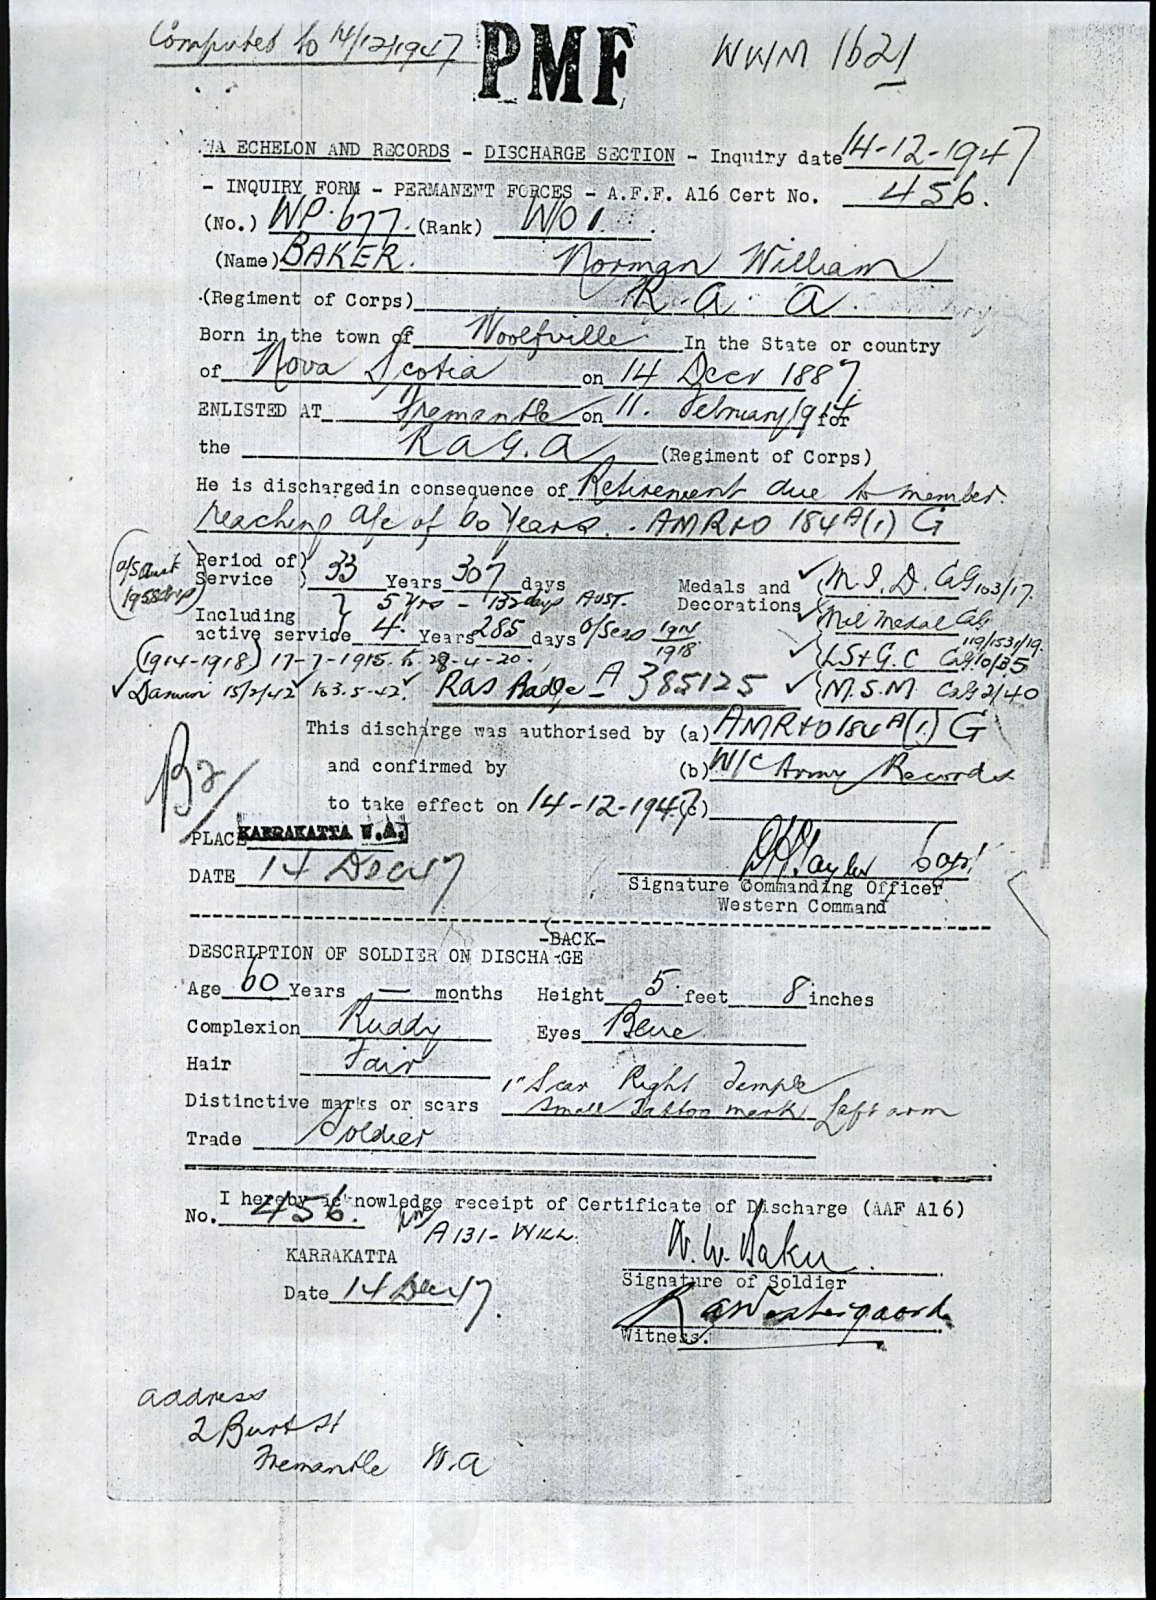 Computed to 14/12/1947
PMF
WWM 1621
A ECHELON AND RECORDS - DISCHARGE SECTION - Inquiry date 14-12-1947
- INQUIRY FORM - PERMANENT FORCES - A.F.F. A16 Cert No. 456.
(No.) WP.677. (Rank) WO1.
(Name) BAKER. Norman William
(Regiment of Corps) R. A. A.
Born in the town of Woolfville In the State or country
of Nova Scotia on 14 Decr 1887.
ENLISTED AT Fremantle on 11. February 1914 for
the R A G. A (Regiment of Corps)
He is dischargedin consequence of Retirement due to member
reaching age of 60 Years. AMR&O 184A(1) G
Period of) 33 Years 307 days
Service )
Medals and
Decorations
M. I. D. CAG 103/17.
Mil Medal CAG
119/1531/19.
LS & G.C CAG 10/35
M.S.M CAG 2/40
O/S Aust
195 days
Including } 5 Yrs - 132 days AUST.
active service 4. Years 285 days O/Seas 1914
1918.
(1914-1918) 17-7-1915 to 28-4-20.
Darwin 15/2/42 to 3.5.42.
RAS Badge - A 385125
This discharge was authorised by (a) AMR&O 184A(1) G
and confirmed by (b) W/C Army Records
to take effect on 14-12-1947 (c)
B2/
PLACE KARRAKATTA W.A.
DATE 14 Dec 47
Taylor Capt
Signature Commanding Officer
Western Command
-BACK-
DESCRIPTION OF SOLDIER ON DISCHARGE
Age 60 Years — months Height 5. feet 8 inches
Complexion Ruddy Eyes Blue
Hair Fair
1" Scar Right Temple
Distinctive marks or scars Small Tattoo mark Left arm
Trade Soldier
I hereby acknowledge receipt of Certificate of Discharge (AAF A16)
No. 456.
A 131 - WILL
KARRAKATTA
N. W. Baker
Signature of Soldier
Date 14 Dec 47.
Witness.
address
2 Burt St
Fremantle W.A